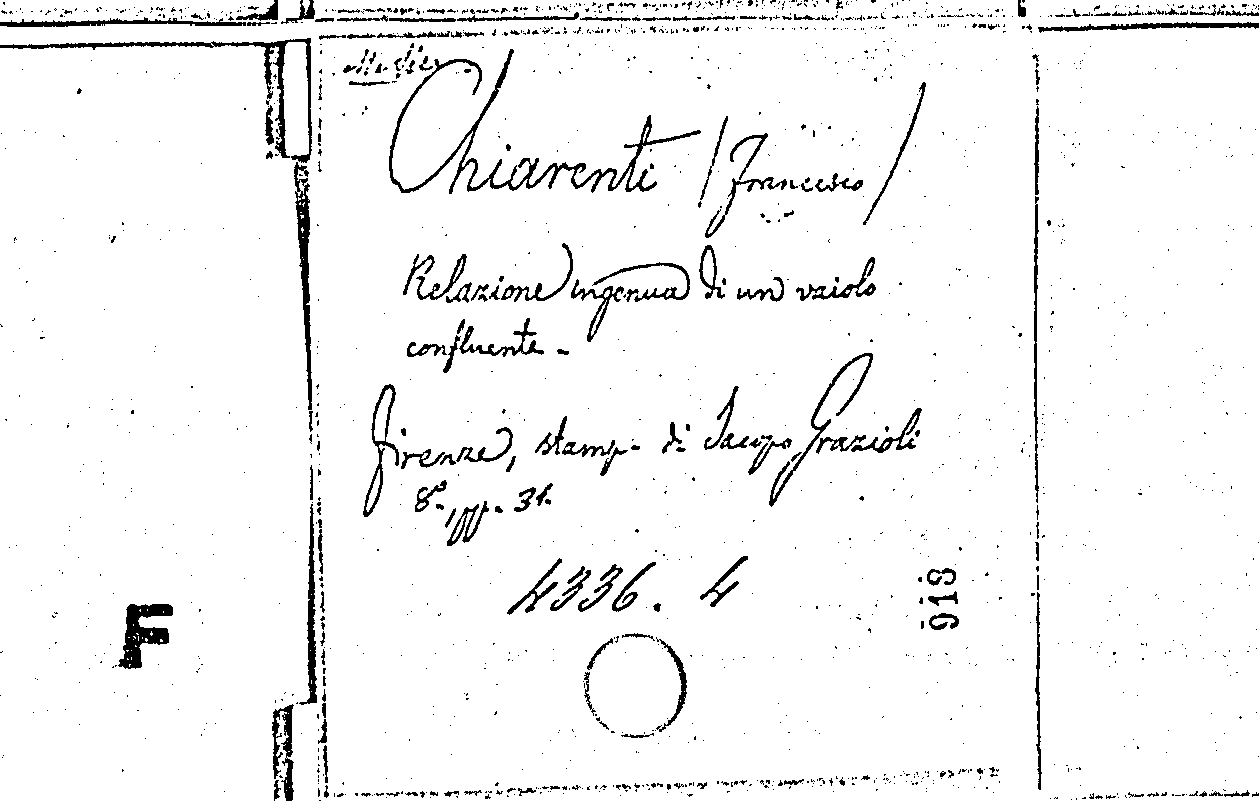 Medic.
Chiarenti (Francesco)
Relazione ingenua di un vaiolo
confluente.
Firenze, stamp. di Jacopo Grazioli
8º, pp. 31.
4336. 4
918
F